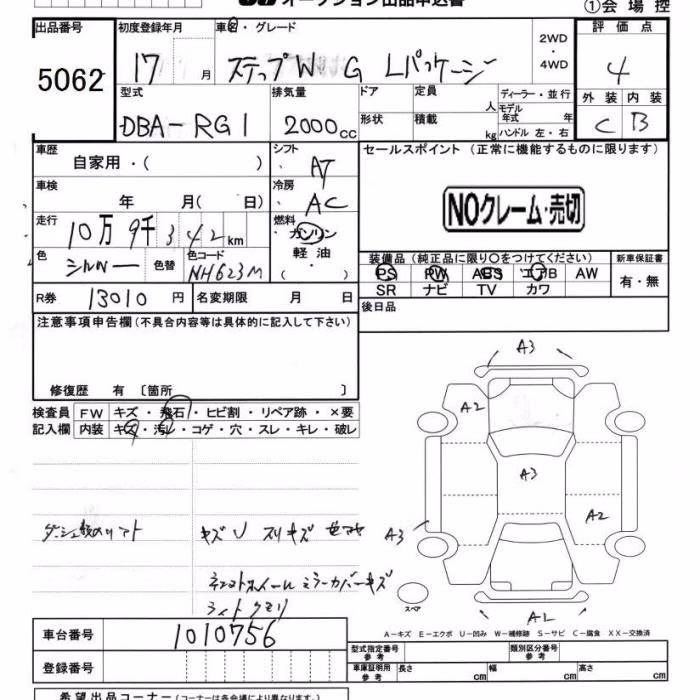 オークション出品申込書
①会場控
出品番号 初度登録年月 車名・グレード 2WD・4WD 評価点
5062 17 月 ステップW G Lパッケージ 4
型式 排気量 ドア 定員 人 ディーラー・並行 外装 内装
DBA-RG1 2000cc 形状 積載 kg モデル年式 年 ハンドル 左・右 C B
車歴 自家用・( ) シフト AT セールスポイント(正常に機能するものに限ります)
車検 年 月( 日) 冷房 AC NOクレーム・売切
走行 10万9千342km 燃料 ガソリン 軽油・( )
色 シルバー 色替 色コード NH623M
装備品(純正品に限り〇をつけてください) 新車保証書
PS PW ABS エアB AW 有・無
SR ナビ TV カワ
R券 13010円 名変期限 月 日 後日品
注意事項申告欄(不具合内容等は具体的に記入して下さい)
修復歴 有〔箇所 〕
検査員記入欄 FW キズ・飛石・ヒビ割・リペア跡・×要
内装 キズ・汚レ・コゲ・穴・スレ・キレ・破レ
A3
A2
A3
A2
A3
キズU スリキズ
ミラーカバーキズ
ライトクモリ
スペア
A2
A-キズ E-エクボ U-凹み W-補修跡 S-サビ C-腐食 XX-交換済
車台番号 1010756
型式指定番号 参考 類別区分番号 参考
登録番号 車庫証明用 参考 長さ cm 幅 cm 高さ cm
希望出品コーナー(コーナーは各会場により異なります)